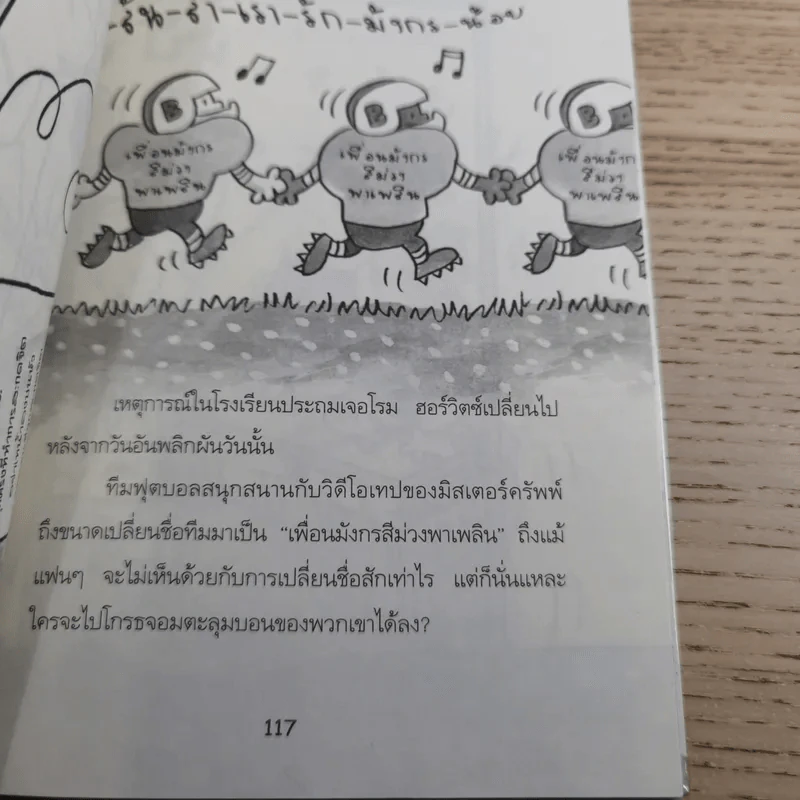 -ลั้น-ลา-เรา-รัก-มังกร-น้อย
B
เพื่อนมังกร
สีม่วง
พาเพลิน
B
เพื่อนมังกร
สีม่วง
พาเพลิน
B
เพื่อนมังก
สีม่วง
พาเพลิน
เหตุการณ์ในโรงเรียนประถมเจอโรม ฮอร์วิตซ์เปลี่ยนไป
หลังจากวันอันพลิกผันวันนั้น
ทีมฟุตบอลสนุกสนานกับวิดีโอเทปของมิสเตอร์ครัพพ์
ถึงขนาดเปลี่ยนชื่อทีมมาเป็น “เพื่อนมังกรสีม่วงพาเพลิน” ถึงแม้
แฟนๆ จะไม่เห็นด้วยกับการเปลี่ยนชื่อสักเท่าไร แต่ก็นั่นแหละ
ใครจะไปโกรธจอมตะลุมบอนของพวกเขาได้ลง?
117